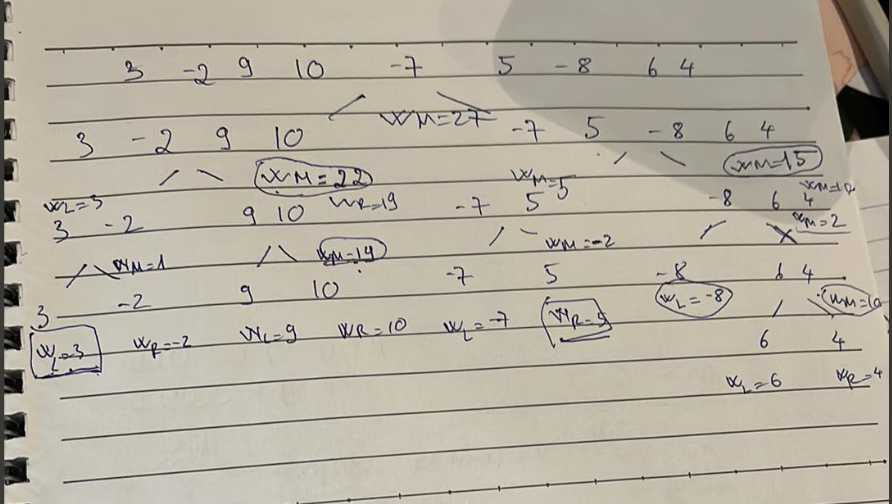 3 -2 9 10 -7 5 -8 6 4
WM=27
3 -2 9 10 -7 5 -8 6 4
WM=22 WM=5 WM=15
WL=3 WR=19 WM=10
3 -2 9 10 -7 5 -8 6 4
WM=1 WM=19 WM=-2 WM=2
3 -2 9 10 -7 5 -8 6 4
WL=3 WR=-2 WL=9 WR=10 WL=-7 WR=5 WL=-8 WM=10
6 4
WL=6 WR=4